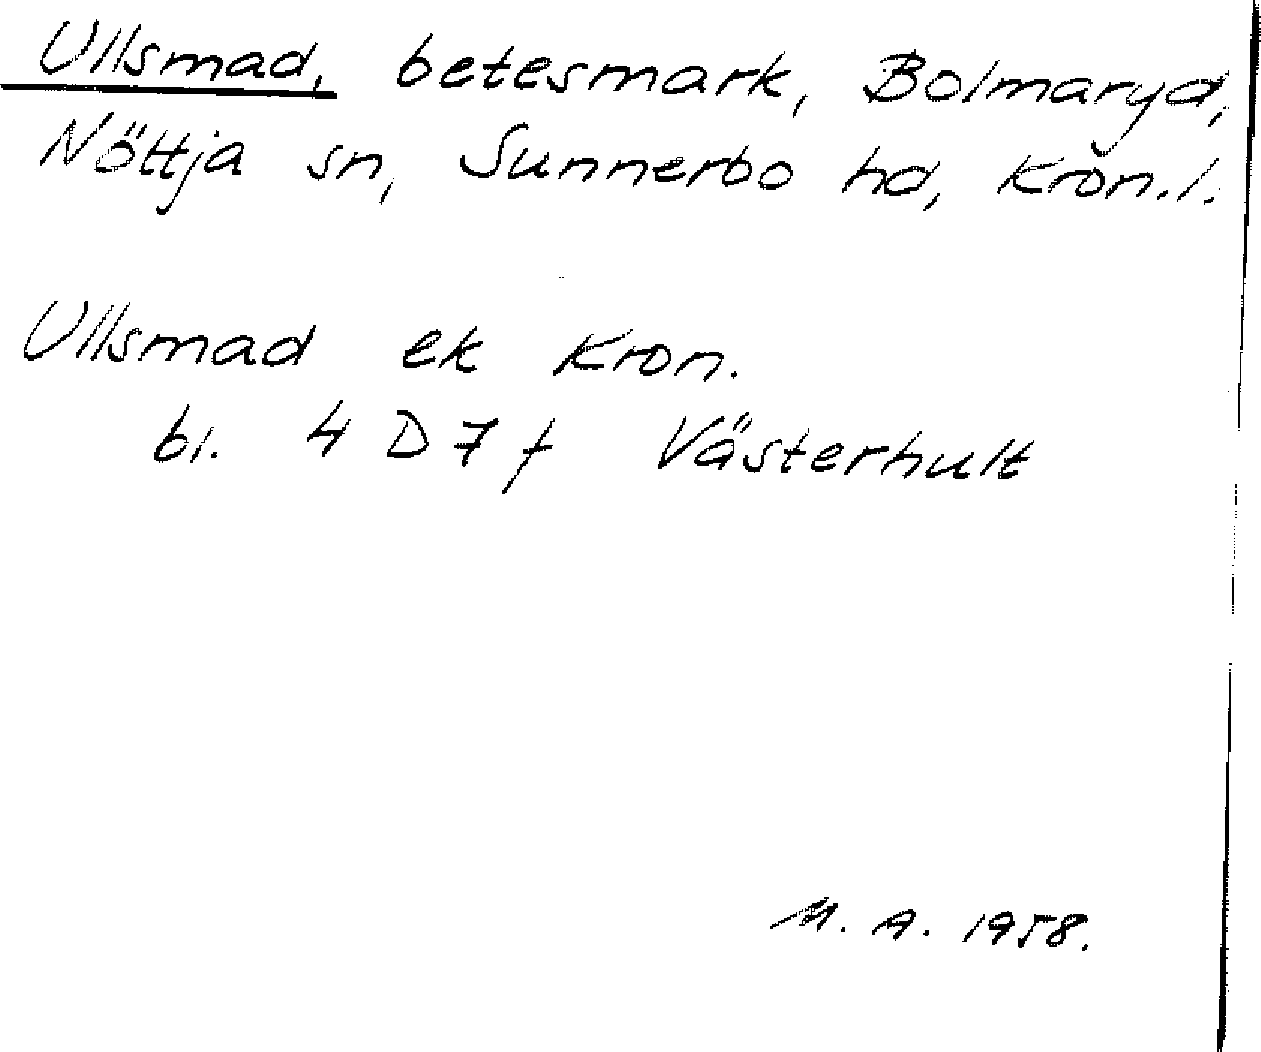 Ullsmad, betesmark, Bolmaryd,
Nöttja sn, Sunnerbo hd, Kron.l.
Ullsmad ek Kron.
bl. 4 D 7 f Västerhult
M. A. 1958.